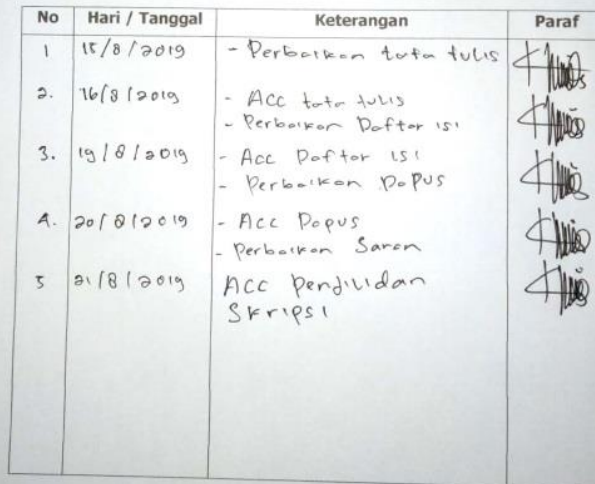 No Hari / Tanggal Keterangan Paraf
1 15/8/2019 - Perbaikan tata tulis
2. 16/8/2019 - Acc tata tulis
- Perbaikan Daftar isi
3. 19/8/2019 - Acc Daftar isi
- Perbaikan Dapus
4. 20/8/2019 - Acc Dapus
- Perbaikan Saran
5 21/8/2019 Acc Penjilidan
Skripsi